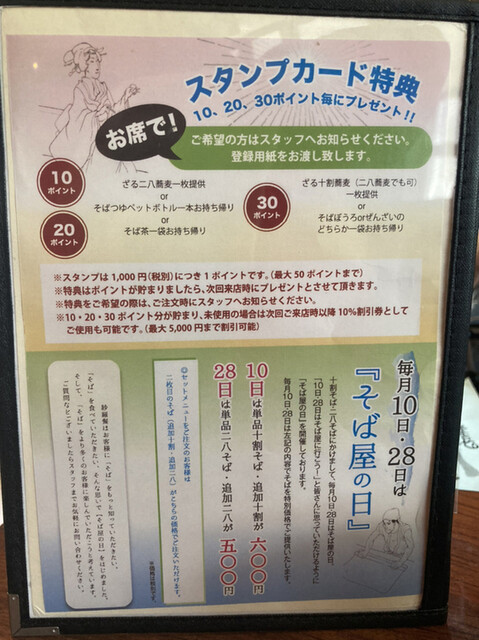 スタンプカード特典
10、20、30ポイント毎にプレゼント!!
お席で!
ご希望の方はスタッフへお知らせください。
登録用紙をお渡し致します。
10
ポイント
20
ポイント
ざる二八蕎麦一枚提供
or
そばつゆペットボトル一本お持ち帰り
or
そば茶一袋お持ち帰り
30
ポイント
ざる十割蕎麦(二八蕎麦でも可)
一枚提供
or
そばぼうろorぜんざいの
どちらか一袋お持ち帰り
※スタンプは1,000円(税別)につき1ポイントです。(最大50ポイントまで)
※特典はポイントが貯まりましたら、次回来店時にプレゼントとさせて頂きます。
※特典をご希望の際は、ご注文時にスタッフへお知らせください。
※10・20・30ポイント分が貯まり、未使用の場合は次回ご来店時以降10%割引券として
ご使用も可能です。(最大5,000円まで割引可能)
毎月10日・28日は
『そば屋の日』
十割そば・二八そばにかけまして、毎月10日・28日はそば屋の日。
「10日・28日はそば屋に行こう!」と皆さんに思っていただけるように
「そば屋の日」を開催しております。
毎月10日・28日は左記の内容でそばを特別価格でご提供いたします。
10日は単品十割そば・追加十割が六〇〇円
28日は単品二八そば・追加二八が五〇〇円
◎セットメニューをご注文のお客様は
二枚目のそば(追加十割・追加二八)がこちらの価格でご注文いただけます。
※価格は税別です。
紗羅餐はお客様に「そば」をもっと知っていただきたい。
「そば」を食べていただきたい。そんな思いで【そば屋の日】をはじめました。
そして、「そば」をより多くのお客様に楽しんでいただこうと考えています。
ご質問などございましたらスタッフまでお気軽にお問い合わせください。